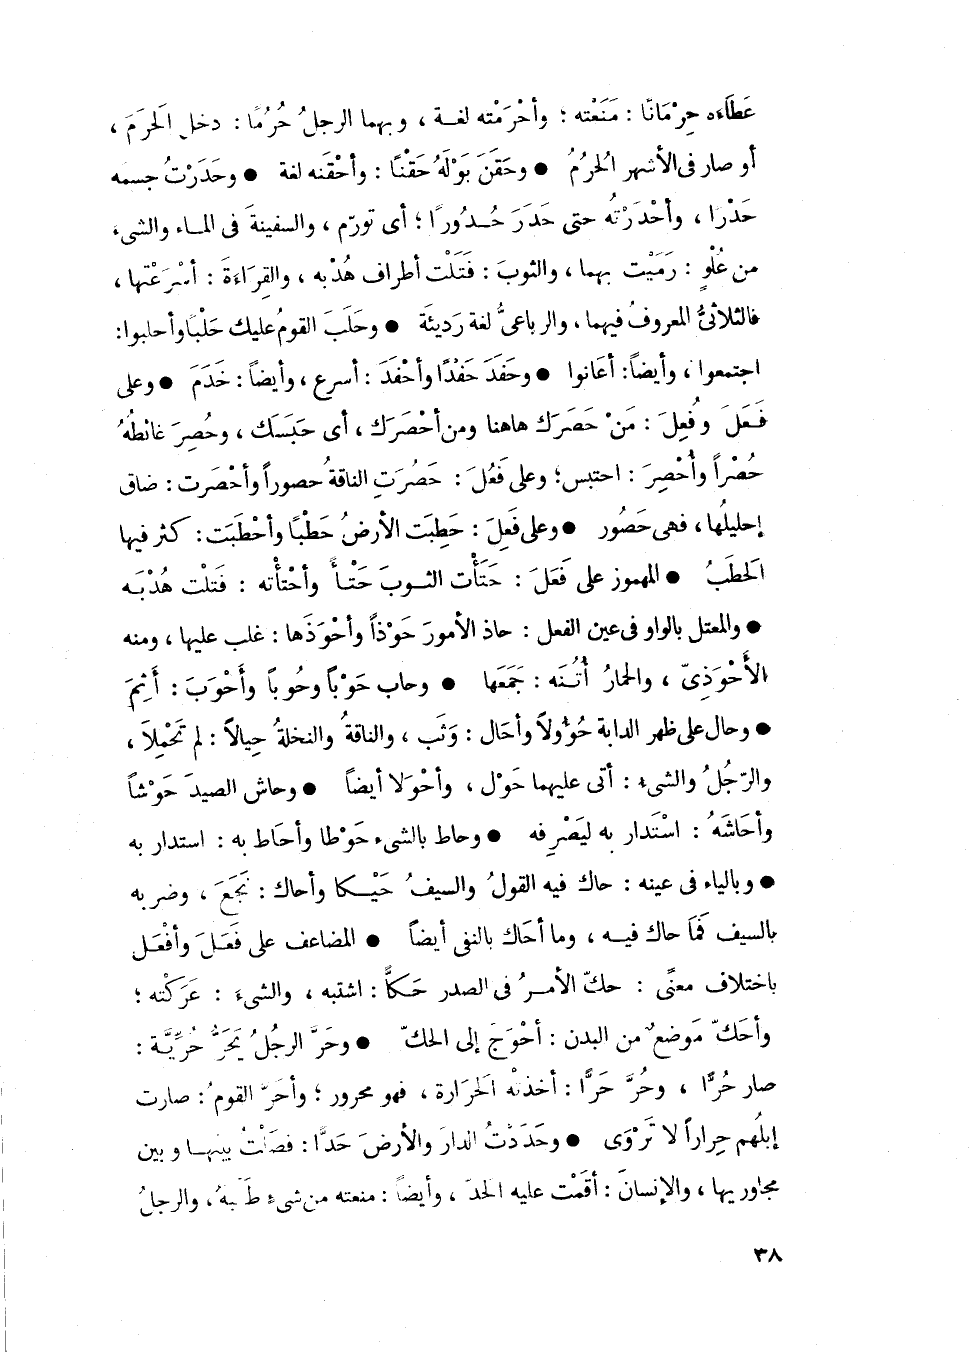 عَطَاءَه حِرْمَانًا : مَنَعْته ؛ وأحْرَمْته لغـة ، وبهما الرجلُ حُرُمًا : دخل الَحرَمَ ،
أو صار فى الأشهر الْحرُمُ ● وحَقَنَ بَوْلَهُ حَقْنًا : وأحْقَنه لغة ● وحَدَرْتُ جسمه
حَدْرًا ، وأحْدَرْتُه حتى حَدَرَ حُـدُورًا ؛ أى تورّم ، والسفينةَ فى المـاء والشىء
من عُلْوٍ : رَمَيْت بهما ، والثوبَ : فَتَلْت أطراف هُدْبه ، والقِرَاءَةَ : أسْرَعْتها ،
فالثلاثىُّ المعروفُ فيهما ، والرباعىُّ لغة رَديئَة ● وحَلَبَ القومُ عليك حَلْبًا وأحلبوا :
اجتمعوا ، وأيضاً : أعَانوا ● وحَفَدَ حَفْدًا وأحْفَدَ : أسرع ، وأيضاً : خَدَمَ ● وعلى
فَـعَلَ وفُعِلَ : مَنْ حَصَرَك هاهنا ومن أحْصَرَك ، أى حَبَسَك ، وحُصِرَ غائطُهُ
حُصْراً وأُحْصِرَ : احتبس ؛ وعلى فَعُلَ : حَصُرَتِ الناقةُ حصوراً وأحْصَرت : ضاق
إحليلُها ، فهى حَصُور ● وعلى فَعِلَ : حَطِبَت الأرضُ حَطْبًا وأحْطَبَت : كثر فيها
الَحطَبُ ● المهموز على فَعَلَ : حَتَأْت الثـوبَ حَتْـأً وأحْتَأْته : فَتَلْت هُدْبَـه
● والمعتل بالواو فى عين الفعل : حاذ الأمورَ حَوْذاً وأحْوَذَها : غلب عليها ، ومنه
الأَحْوَذِىّ ، والحمارُ أُتُـنَه : جَمَعَها ● وحاب حَوْباً وحُوباً وأَحْوَبَ : أَثِمَ
● وحال على ظهر الدابة حُؤُولاً وأحَال : وَثَب ، والناقةُ والنخلةُ حِيالاً : لم تَحْمِلاَ ،
والرّجُلُ والشىء : أتى عليهما حَوْل ، وأحْوَلا أيضاً ● وحاش الصيدَ حَوْشاً
وأحَاشَهُ : اسْتَدار به ليَصْرِفه ● وحاط بالشىء حَوْطا وأحَاط به : استدار به
● وبالياء فى عينه : حاك فيه القولُ والسيفُ حَيْـكا وأحاك : نَجَعَ ، وضربه
بالسيف فَمَا حاك فيـه ، وما أحَاك بالنفى أيضاً ● المضاعف على فَعَـلَ وأفْعَـل
باختلاف معنًى : حكّ الأمـرُ فى الصدر حَـكاًّ : اشتبه ، والشىءَ : عَرَكْته ؛
وأحَكّ مَوضعٌ من البدن : أحْوَجَ إلى الحكّ ● وحَرَّ الرجُلُ يَحَرُّ حُرِّيَّـة :
صار حُرًّا ، وحُرَّ حَرًّا : أخذتْه الَحرَارة ، فهو محرور ؛ وأحَرّ القومُ : صارت
إبلُهم حِراراً لا تَرْوَى ● وحَدَدْتُ الدارَ والأرضَ حَدًّا : فصَلْتُ بينهـا وبين
مجاوريها ، والإنسانَ : أقَمْت عليه الحدّ ، وأيضاً : منعته من شىء طَلبهُ ، والرجلُ
٣٨